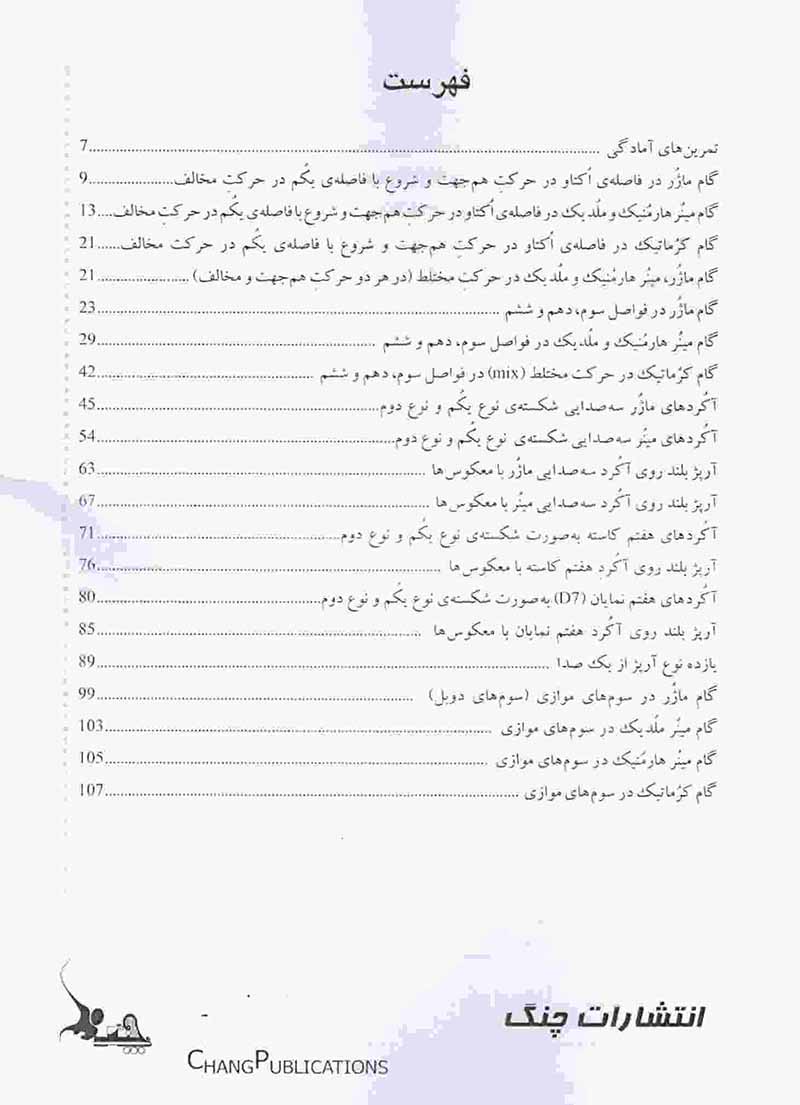 فهرست
تمرین‌های آمادگی ........ 7
گام ماژُر در فاصله‌ی اُکتاو در حرکتِ هم‌جهت و شروع با فاصله‌ی یکُم در حرکتِ مخالف ........ 9
گام مینُر هارمُنیک و ملُدیک در فاصله‌ی اُکتاو در حرکتِ هم‌جهت و شروع با فاصله‌ی یکُم در حرکتِ مخالف .... 13
گام کرُماتیک در فاصله‌ی اُکتاو در حرکتِ هم‌جهت و شروع با فاصله‌ی یکُم در حرکت مخالف ...... 21
گام ماژُر، مینُر هارمُنیک و ملُدیک در حرکتِ مختلط (در هر دو حرکتِ هم‌جهت و مخالف) ........ 21
گام ماژُر در فواصل سوم، دهم و ششم ........ 23
گام مینُر هارمُنیک و ملُدیک در فواصل سوم، دهم و ششم ........ 29
گام کرُماتیک در حرکت مختلط (mix) در فواصل سوم، دهم و ششم ........ 42
آکُردهای ماژُر سه‌صدایی شکسته‌ی نوع یکُم و نوع دوم ........ 45
آکُردهای مینُر سه‌صدایی شکسته‌ی نوع یکُم و نوع دوم ........ 54
آرپژ بلند روی آکُرد سه‌صدایی ماژُر با معکوس‌ها ........ 63
آرپژ بلند روی آکُرد سه‌صدایی مینُر با معکوس‌ها ........ 67
آکُردهای هفتم کاسته به‌صورت شکسته‌ی نوع یکُم و نوع دوم ........ 71
آرپژ بلند روی آکُردِ هفتم کاسته با معکوس‌ها ........ 76
آکُردهای هفتم نمایان (D7) به‌صورت شکسته‌ی نوع یکُم و نوع دوم ........ 80
آرپژ بلند روی آکُرد هفتم نمایان با معکوس‌ها ........ 85
یازده نوع آرپژ از یک صدا ........ 89
گام ماژُر در سوم‌های موازی (سوم‌های دوبل) ........ 99
گام مینُر ملُدیک در سوم‌های موازی ........ 103
گام مینُر هارمُنیک در سوم‌های موازی ........ 105
گام کرُماتیک در سوم‌های موازی ........ 107
انتشارات چنگ
CHANGPUBLICATIONS